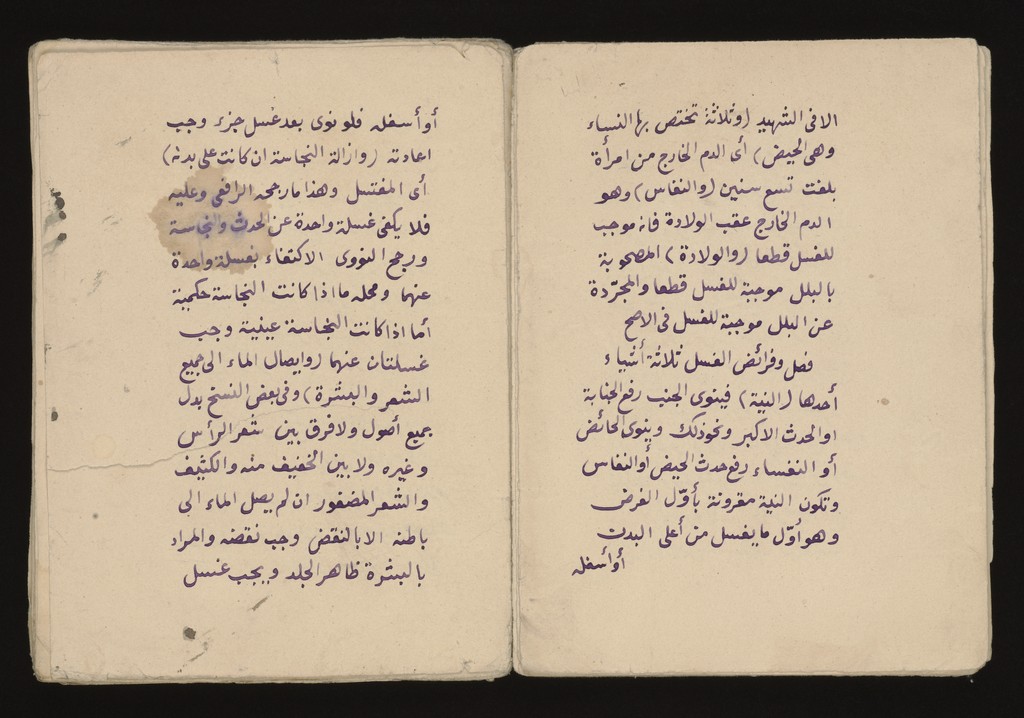 الا فى الشهيد (وثلاثة تختص بها النساء
وهى الحيض) أى الدم الخارج من امرأة
بلغت تسع سنين (والنفاس) وهو
الدم الخارج عقب الولادة فانه موجب
للغسل قطعا (والولادة) المصحوبة
بالبلل موجبة للغسل قطعا والمجرّدة
عن البلل موجبة للغسل فى الاصح
فصل وفرائض الغسل ثلاثة أشياء
أحدها (النية) فينوى الجنب رفع الجنابة
او الحدث الاكبر ونحو ذلك وينوى الحائض
أو النفساء رفع حدث الحيض أو النفاس
وتكون النية مقرونة بأوّل الفرض
وهو أوّل ما يغسل من أعلى البدن
أو أسفله
أو أسفله فلو نوى بعد غسل جزء وجب
اعادته (وازالة النجاسة ان كانت على بدنه)
أى المغتسل وهذا ما رجحه الرافعى وعليه
فلا يكفى غسلة واحدة عن الحدث والنجاسة
ورجح النووى الاكتفاء بغسلة واحدة
عنهما ومحله ما اذا كانت النجاسة حكمية
أما اذا كانت النجاسة عينية وجب
غسلتان عنهما (وايصال الماء الى جميع
الشعر والبشرة) وفى بعض النسخ بدل
جميع أصول ولا فرق بين شعر الرأس
وغيره ولا بين الخفيف منه والكثيف
والشعر المضفور ان لم يصل الماء الى
باطنه الا بالنقض وجب نقضه والمراد
بالبشرة ظاهر الجلد ويجب غسل